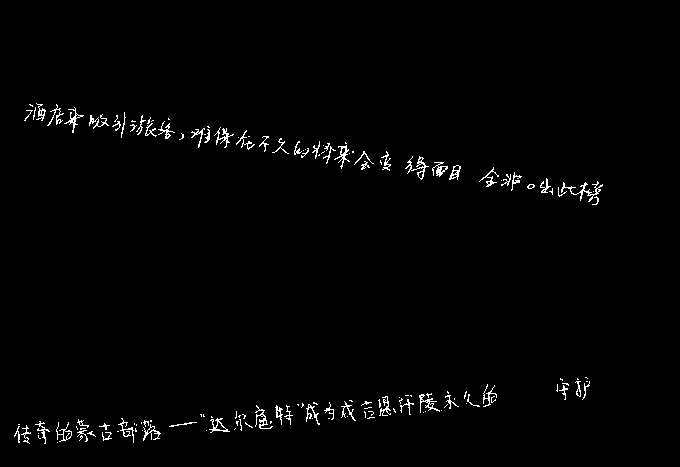 酒店来吸引旅客,难保在不久的将来会变得面目全非。出此榜
传奇的蒙古部落——“达尔扈特”成为成吉思汗陵永久的守护